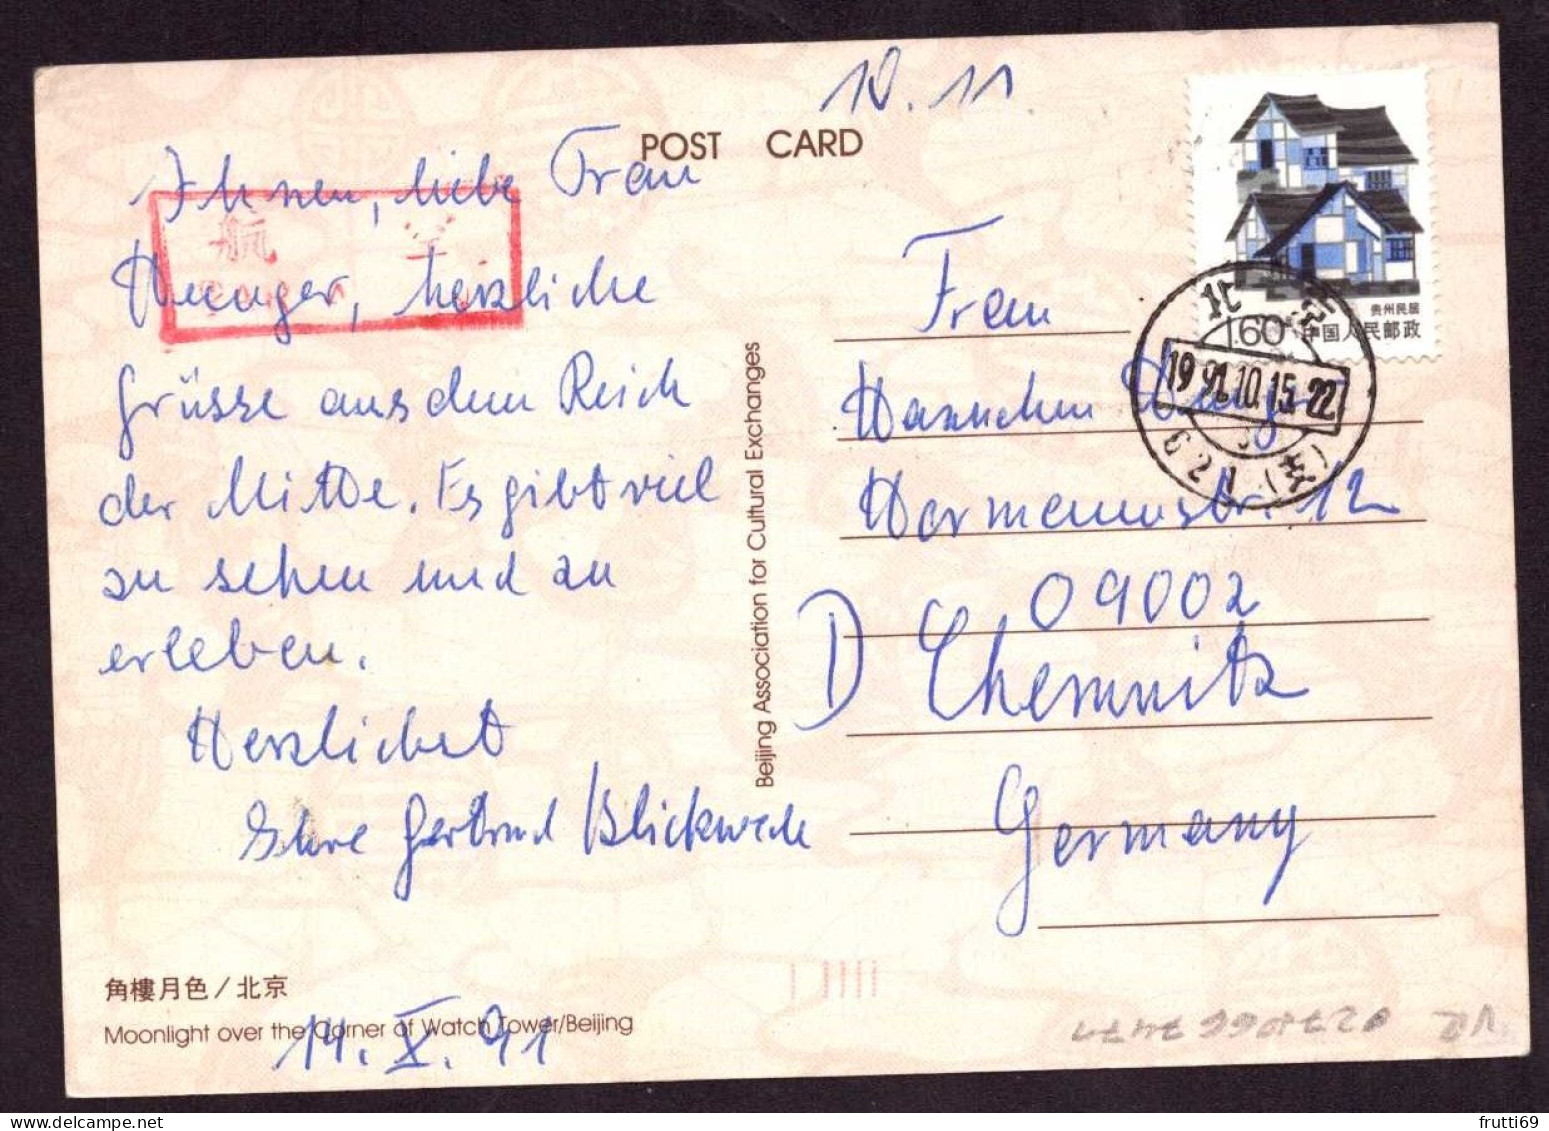 10.11
POST CARD
Ihnen, liebe Frau
herzliche
Grüsse aus dem Reich
der Mitte. Es gibt viel
zu sehen und zu
erleben.
Herzlichst
Ihre Gertrud Blickwede
角樓月色/北京
Moonlight over the Corner of Watch Tower/Beijing
14.X.91
Beijing Association for Cultural Exchanges
航 空
贵州民居
1.60 中国人民邮政
北京
1991.10.15.22
621(支)
Frau
Hannchen
Hermannstr. 12
09002
D Chemnitz
Germany
VR
frutti69